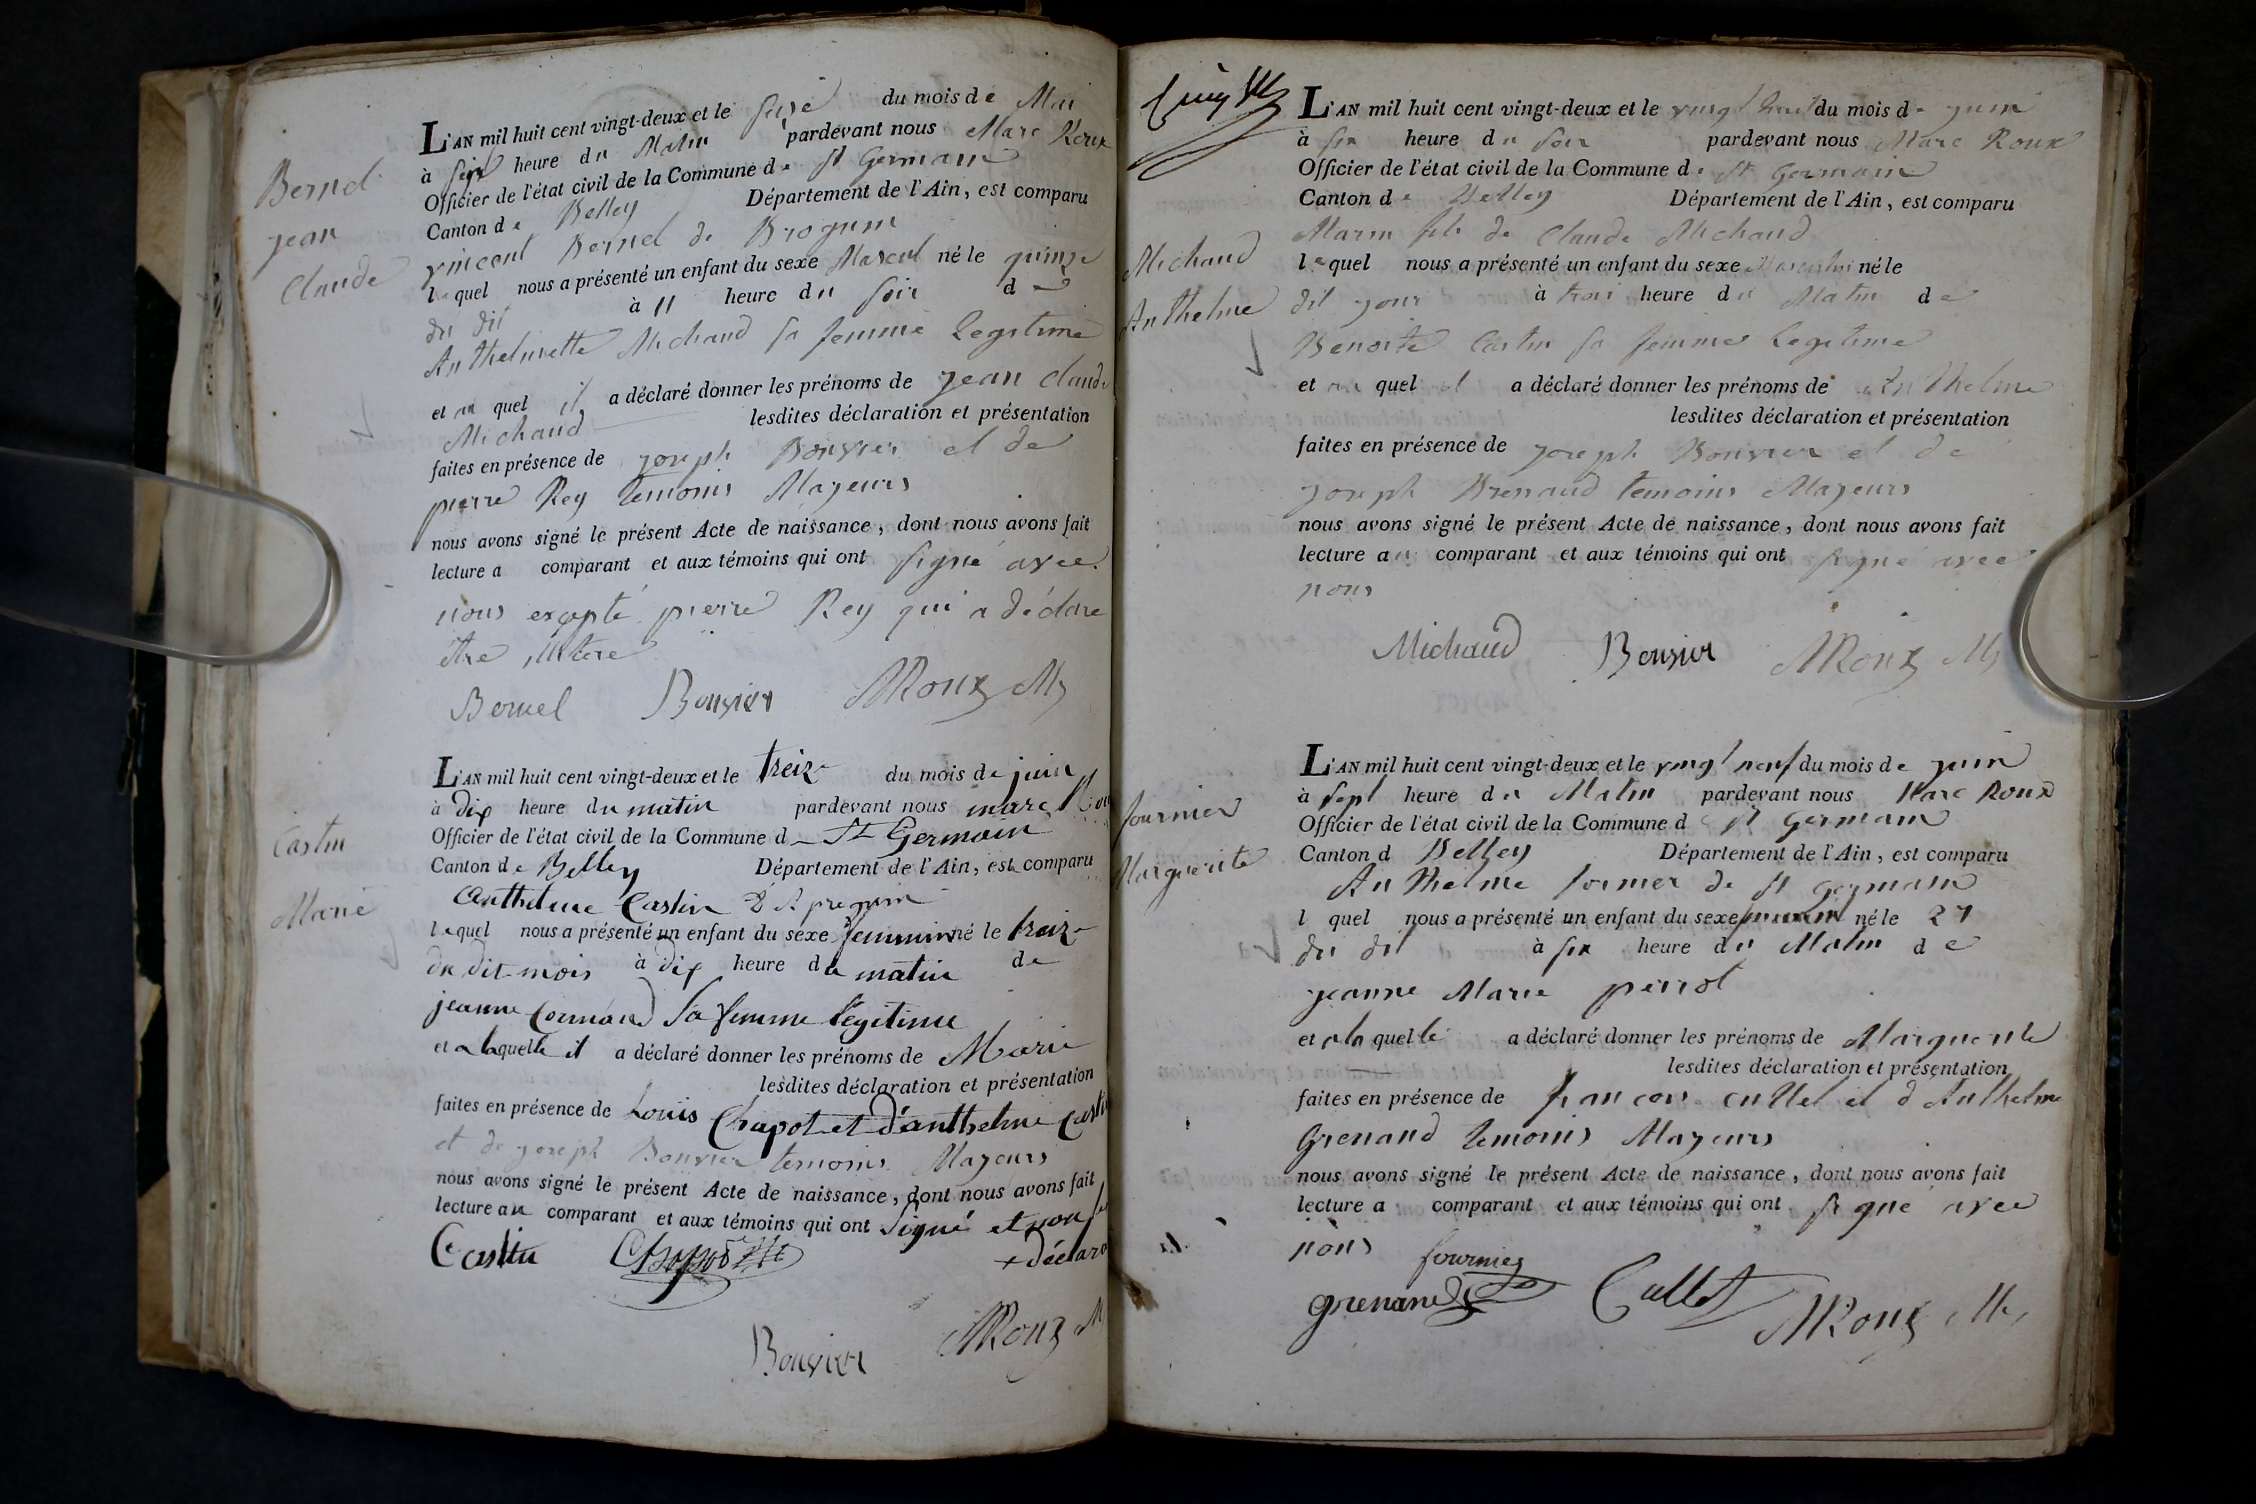 Bernel
jean
Claude
L'AN mil huit cent vingt-deux et le seize du mois de Mai
à six heure du Matin pardevant nous Marc Roux
Officier de l'état civil de la Commune de St Germain
Canton de Belley Département de l'Ain, est comparu
vincent Bernel de Brognin
lequel nous a présenté un enfant du sexe Mascul né le quinze
du dit à 11 heure du soir de
Anthelmette Michaud sa femme Legitime
et au quel il a déclaré donner les prénoms de jean claude
Michaud lesdites déclaration et présentation
faites en présence de joseph Bouvier et de
pierre Rey temoins Majeurs
nous avons signé le présent Acte de naissance, dont nous avons fait
lecture a comparant et aux témoins qui ont signé avec
nous excepté pierre Rey qui a déclare
être illitere
Bernel Bouvier MRoux M
Castin
Marie
L'AN mil huit cent vingt-deux et le treize du mois de juin
à dix heure du matin pardevant nous marc Rou
Officier de l'état civil de la Commune d St Germain
Canton de Belley Département de l'Ain, est comparu
anthelme Castin
lequel nous a présenté un enfant du sexe femminin né le treize
du dit mois à dix heure du matin de
jeanne Cormand sa femme légitime
et a laquelle il a déclaré donner les prénoms de Marie
lesdites déclaration et présentation
faites en présence de Louis Chapot et d'anthelme Castin
et de joseph Bouvier temoins Majeurs
nous avons signé le présent Acte de naissance, dont nous avons fait
lecture au comparant et aux témoins qui ont signé et non
+ déclara
Castin Chapot
Bouvier MRoux M
Michaud
Anthelme
L'AN mil huit cent vingt-deux et le vingt huit du mois de juin
à six heure du soir pardevant nous Marc Roux
Officier de l'état civil de la Commune de St Germain
Canton de Belley Département de l'Ain, est comparu
Marin fils de Claude Michaud
lequel nous a présenté un enfant du sexe Masculin né le
dit jour à trois heure du Matin de
Benoite Castin sa femme Legitime
et au quel il a déclaré donner les prénoms de Anthelme
lesdites déclaration et présentation
faites en présence de joseph Bouvier et de
joseph Brenaud temoins Majeurs
nous avons signé le présent Acte de naissance, dont nous avons fait
lecture au comparant et aux témoins qui ont signé avec
nous
Michaud Bouvier MRoux M
fournier
Marguerite
L'AN mil huit cent vingt-deux et le vingt neuf du mois de juin
à sept heure du Matin pardevant nous Marc Roux
Officier de l'état civil de la Commune d St Germain
Canton d Belley Département de l'Ain, est comparu
Anthelme fornier de St germain
l quel nous a présenté un enfant du sexe né le 27
du dit à six heure du Matin de
jeanne Marie perrot
et a la quelle a déclaré donner les prénoms de Marguerite
lesdites déclaration et présentation
faites en présence de francois cullet et d'Anthelme
Grenand temoins Majeurs
nous avons signé le présent Acte de naissance, dont nous avons fait
lecture a comparant et aux témoins qui ont signé avec
nous fournier
grenand Cullet MRoux M